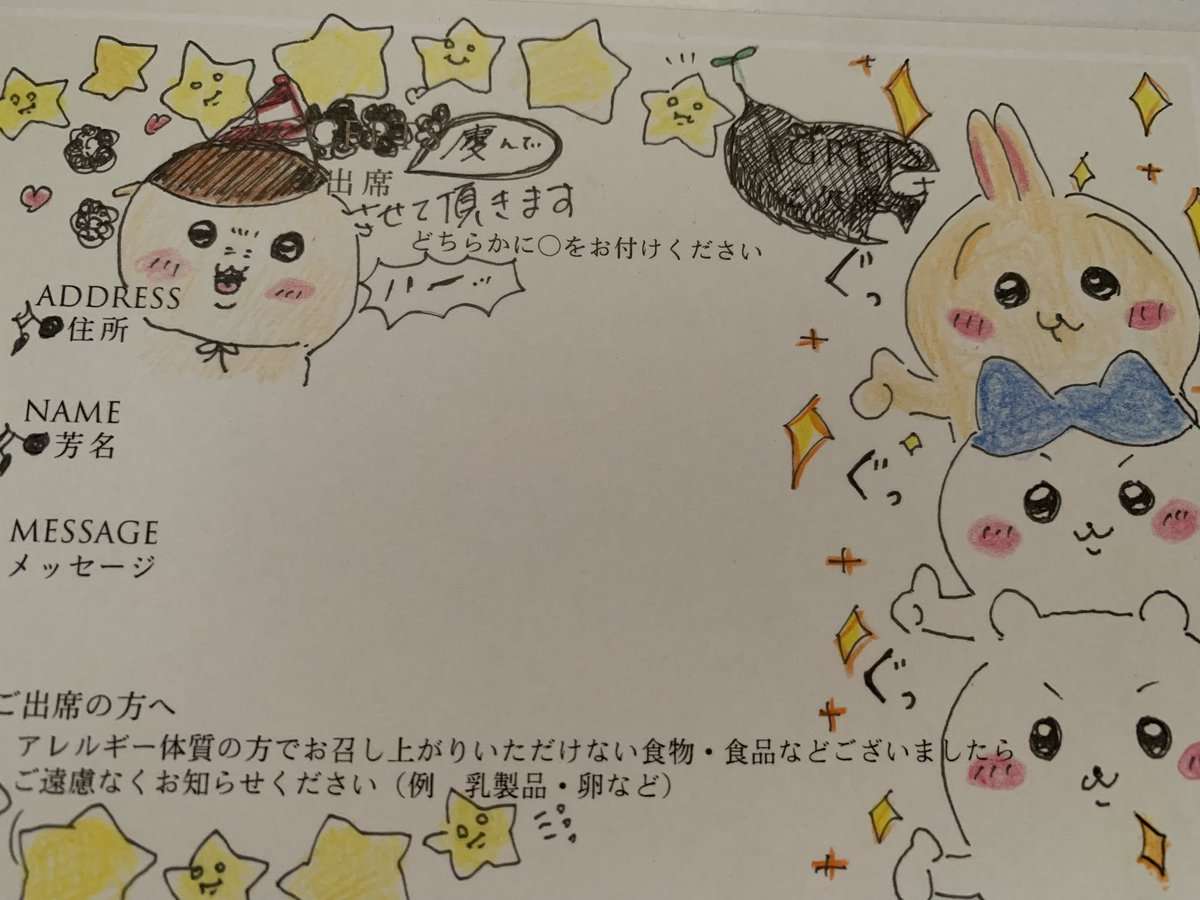 慶んで
出席
させて頂きます
どちらかに〇をお付けください
ハー…
ADDRESS
住所
NAME
芳名
MESSAGE
メッセージ
ぐっ
ぐっ
ぐっ
ご出席の方へ
アレルギー体質の方でお召し上がりいただけない食物・食品などございましたら
ご遠慮なくお知らせください（例　乳製品・卵など）